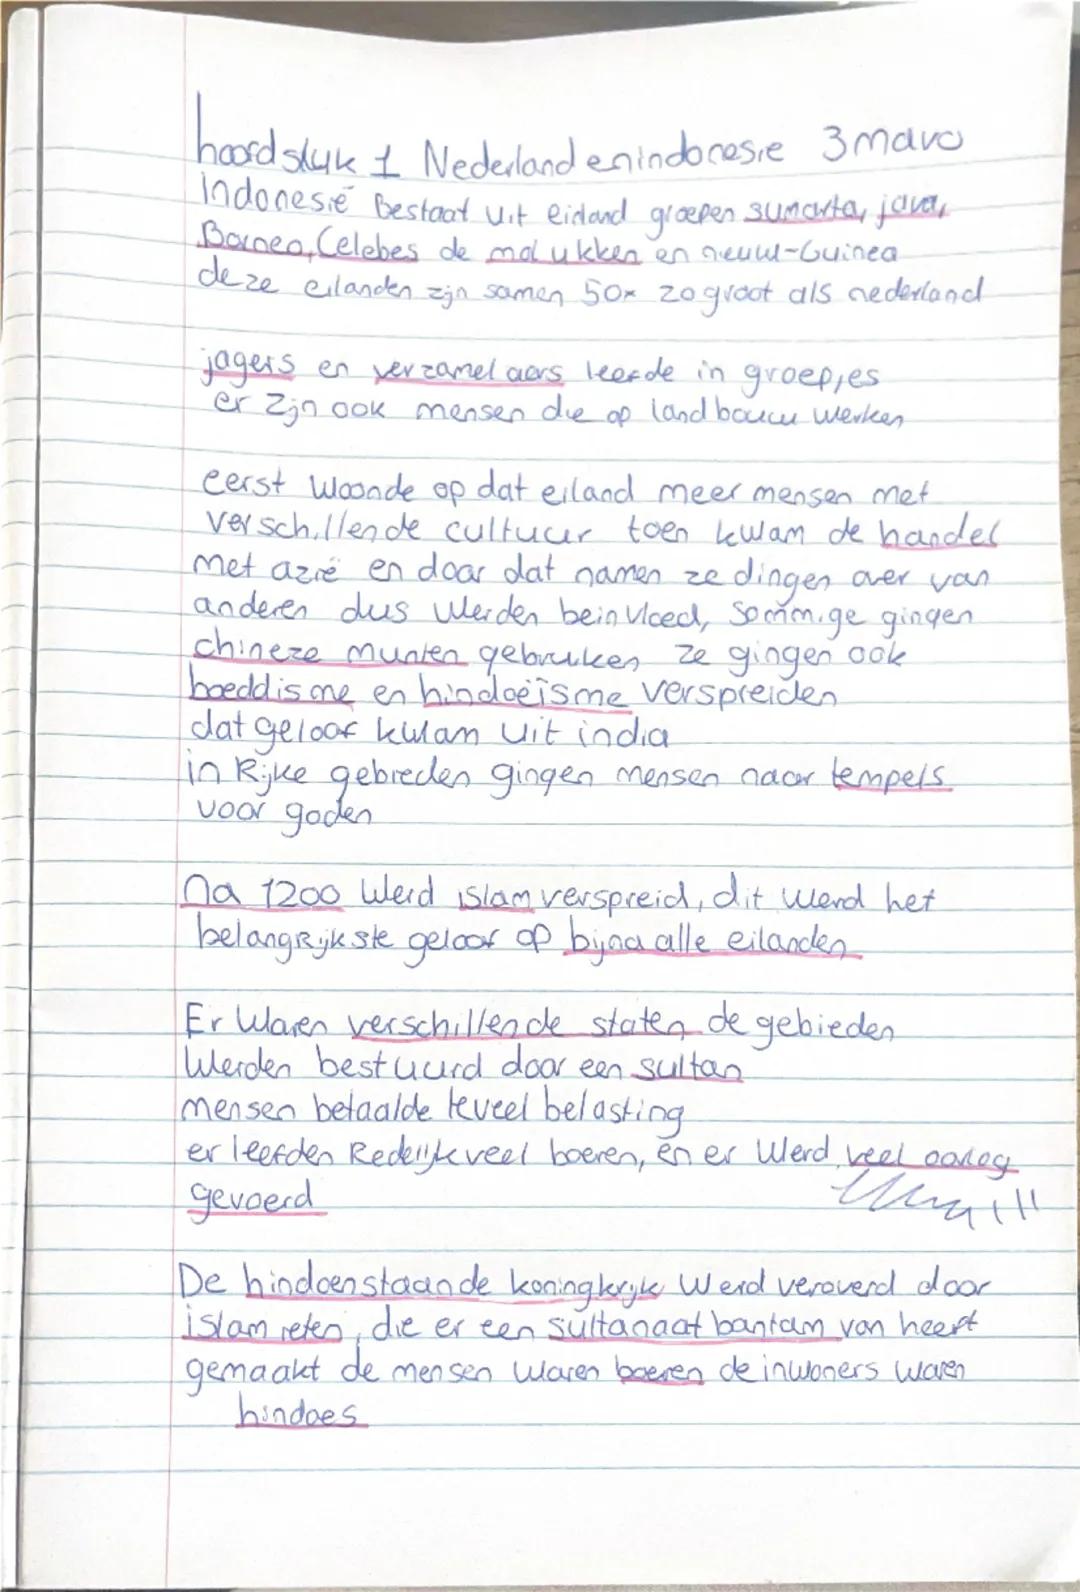 hoofdstuk 1 Nederland en indonesie 3 mavo
indonesië Bestaat uit eidand groepen sumarta, java,
Borneo, Celebes de molukken en nieuw-Guinea
deze eilanden zijn samen 50x zo groot als nederland
jagers en verzamelaers leefde in groepjes
er zijn ook mensen die op landbouw werken
eerst woonde op dat eiland meer mensen met
verschillende cultuur toen kwam de handel
met azië en door dat namen ze dingen over van
anderen dus werden beinvloed, sommige gingen
chineze munten gebruiken ze gingen ook
boeddisme en hindoeïsme verspreiden
dat geloof kwam uit india
in Rijke gebieden gingen mensen naar tempels
voor goden
Na 1200 Werd islam verspreid, dit werd het
belangrijkste geloof op bijna alle eilanden
Er Waren verschillende staten de gebieden
Werden bestuurd door een sultan
mensen betaalde teveel belasting
er leefden Redelijk veel boeren, en er Werd veel oorlog
gevoerd
De hindoenstaande koningkrijk Werd veroverd door
islamieten, die er een sultanaat bantam van heeft
gemaakt de mensen waren boeren de inwoners waren
hindoes